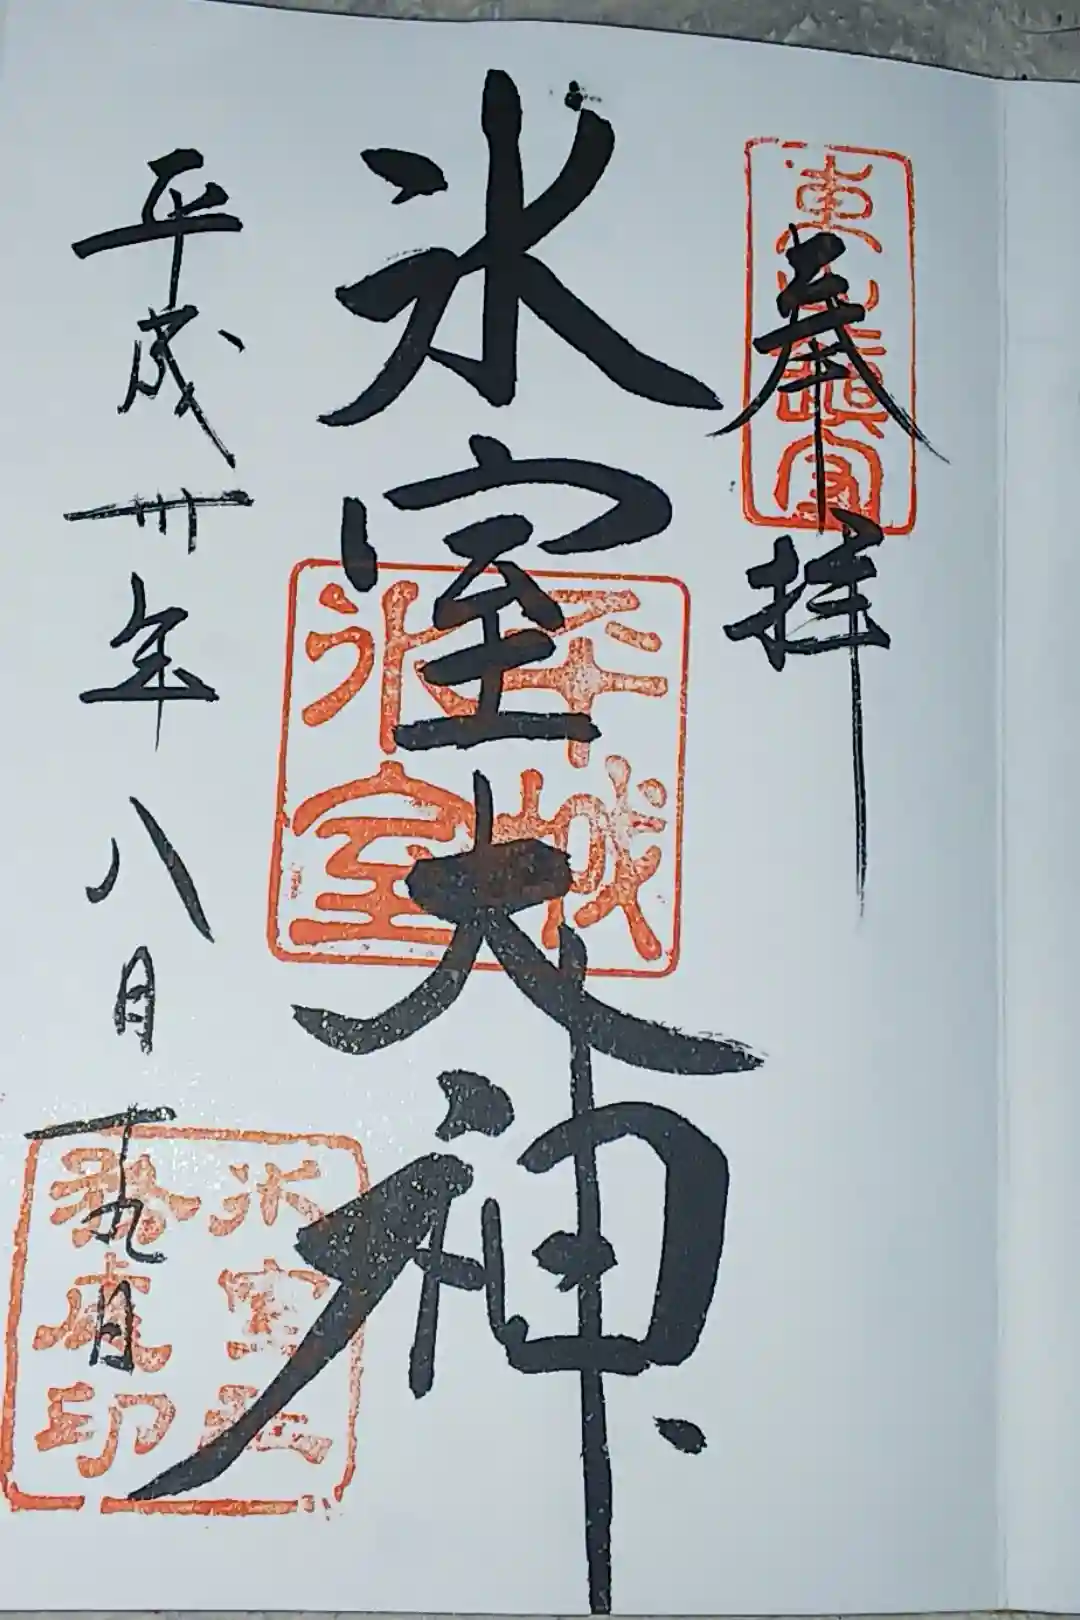 奉拝
氷室大神
平城
氷室
平成卅年八月十九日
氷室社
務處印